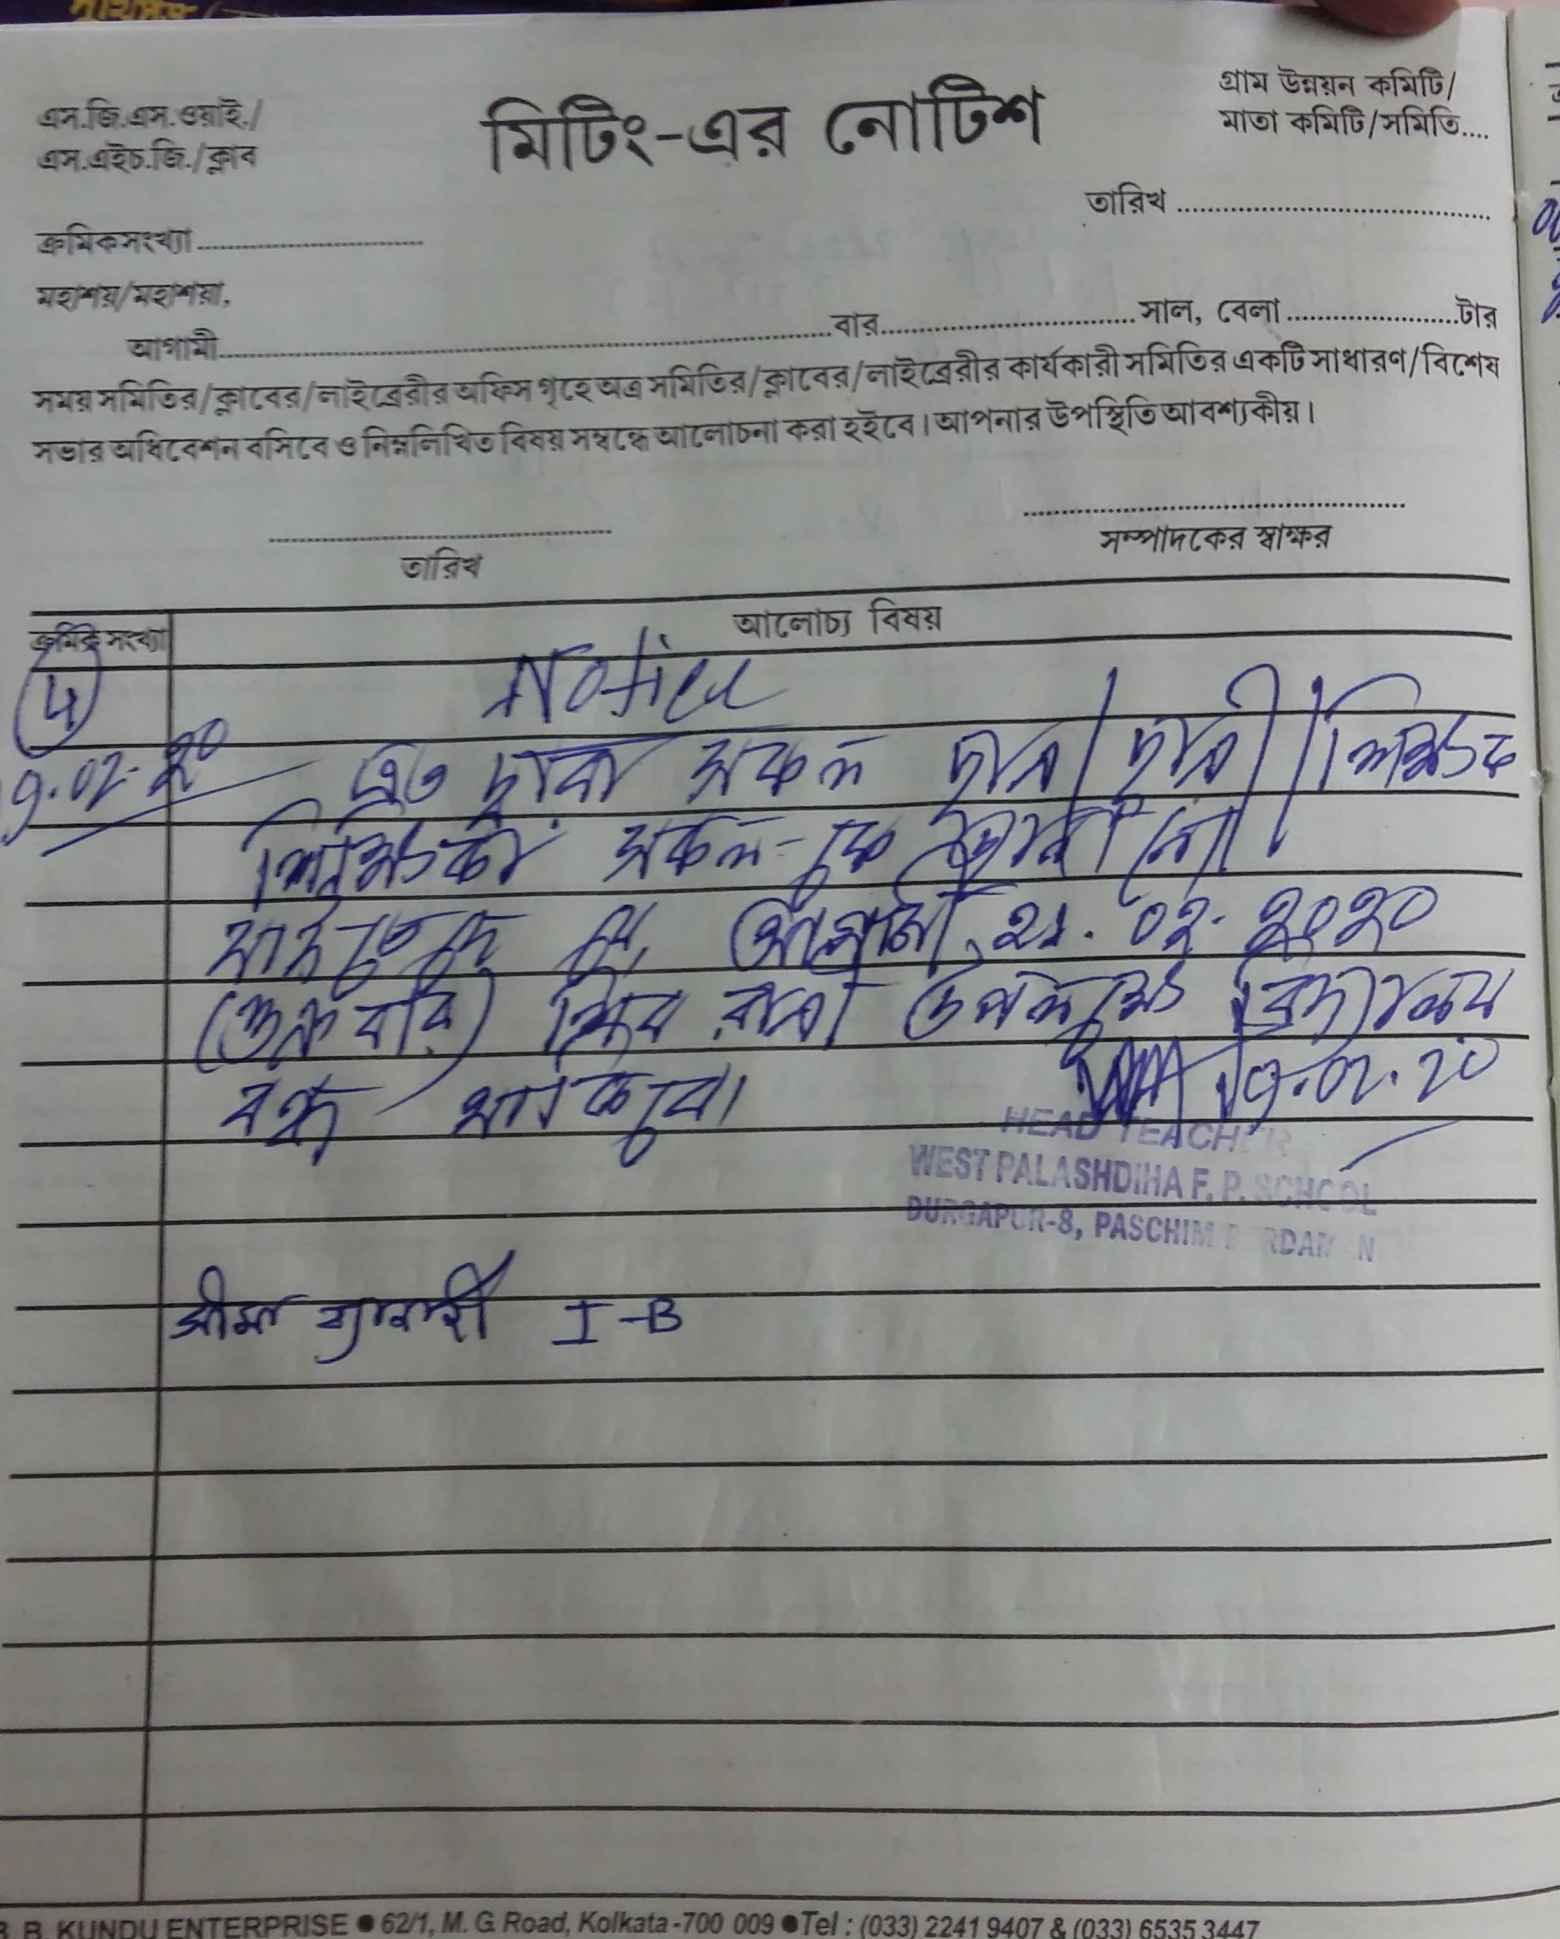 এস.জি.এস.ওয়াই./
এস.এইচ.জি./ক্লাব
মিটিং-এর নোটিশ
গ্রাম উন্নয়ন কমিটি/
মাতা কমিটি/সমিতি....
তারিখ
ক্রমিকসংখ্যা
মহাশয়/মহাশয়া,
আগামী..........বার..........সাল, বেলা..........টার
সময় সমিতির/ক্লাবের/লাইব্রেরীর অফিস গৃহে অত্র সমিতির/ক্লাবের/লাইব্রেরীর কার্যকারী সমিতির একটি সাধারণ/বিশেষ
সভার অধিবেশন বসিবে ও নিম্নলিখিত বিষয় সম্বন্ধে আলোচনা করা হইবে। আপনার উপস্থিতি আবশ্যকীয়।
তারিখ
সম্পাদকের স্বাক্ষর
ক্রমিক সংখ্যা
আলোচ্য বিষয়
Notice
9.02.20
এত দ্বারা সকল ছাত্র/ছাত্রী/শিক্ষক
শিক্ষিকা সকল-কে জানানো
যাইতেছে যে, আগামী ২১.০২.২০২০
(শুক্রবার) শিব রাত্রী উপলক্ষে বিদ্যালয়
বন্ধ থাকিবে।
19.02.20
HEAD TEACHER
WEST PALASHDIHA F. P. SCHOOL
DURGAPUR-8, PASCHIM BURDAMAN
সীমা ব্যানার্জী I-B
B. B. KUNDU ENTERPRISE ● 62/1, M. G. Road, Kolkata-700 009 ● Tel : (033) 2241 9407 & (033) 6535 3447